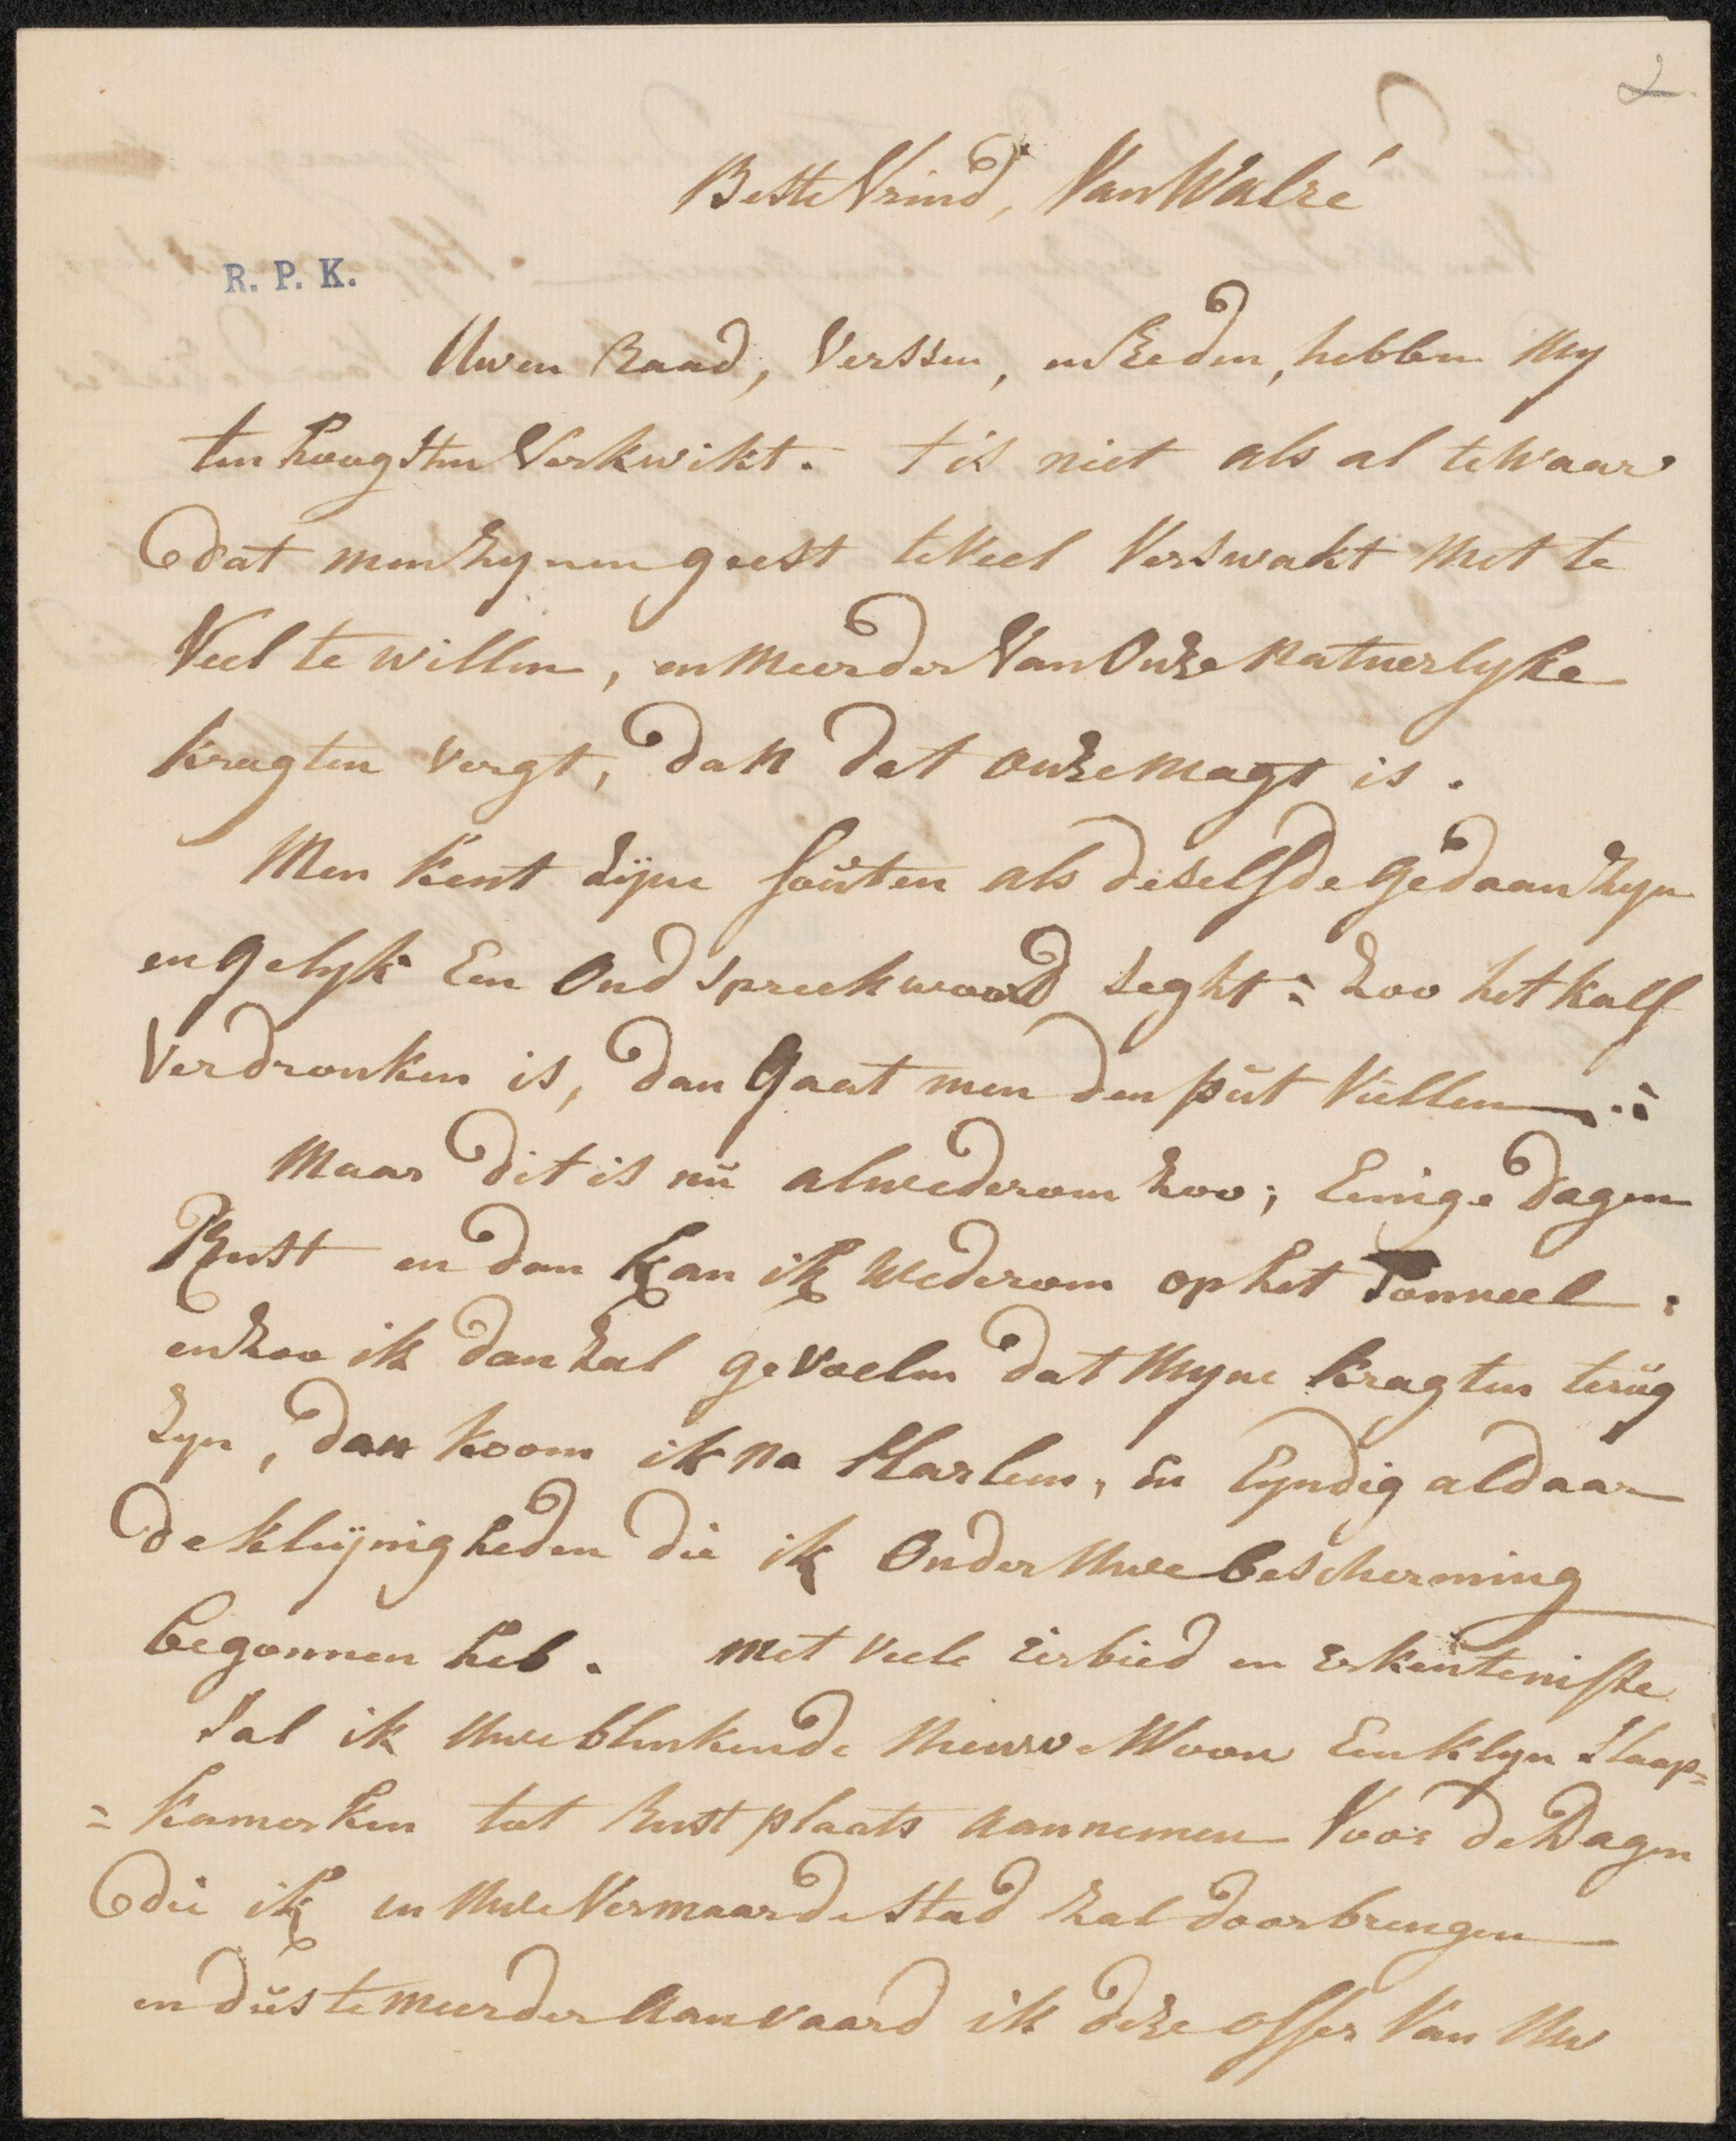 2
Beste Vrind, Van Walré
R. P. K.
Uwen Raad, Verssen, en Reden, hebben my
ten hoogsten Verkwikt. t is niet als al te Waar
dat men zynen geest te Veel Verswakt met te
Veel te willen, en meerder Van Onze natuerlyke
kragten vergt, dan dat onze magt is.
Men kent zijne fouten als deselfde gedaan zyn
en gelyk Een Oud spreekwoord seght: zoo het kalf
Verdronken is, dan gaat men den put Vullen
maar dit is nu alwederom zoo; Eenige dagen
Rust en dan kan ik wederom op het Tonneel:
en zoo ik dan zal gevoelen dat myne kragten terug
zyn, dan koom ik na Harlem, en Eyndig aldaar
de kleijnigheden die ik Onder Uwe bescherming
begonnen heb. met veele Eerbied en erkentenisse
Sal ik Uwe blinkende nieuwe Woon Een klyn Slaap=
=kamerken tot Rust plaats aannemen Voor de Dagen
die ik in Uwe Vermaarde Stad zal doorbrengen
en dus te meerder aanvaard ik deze offer Van Uw